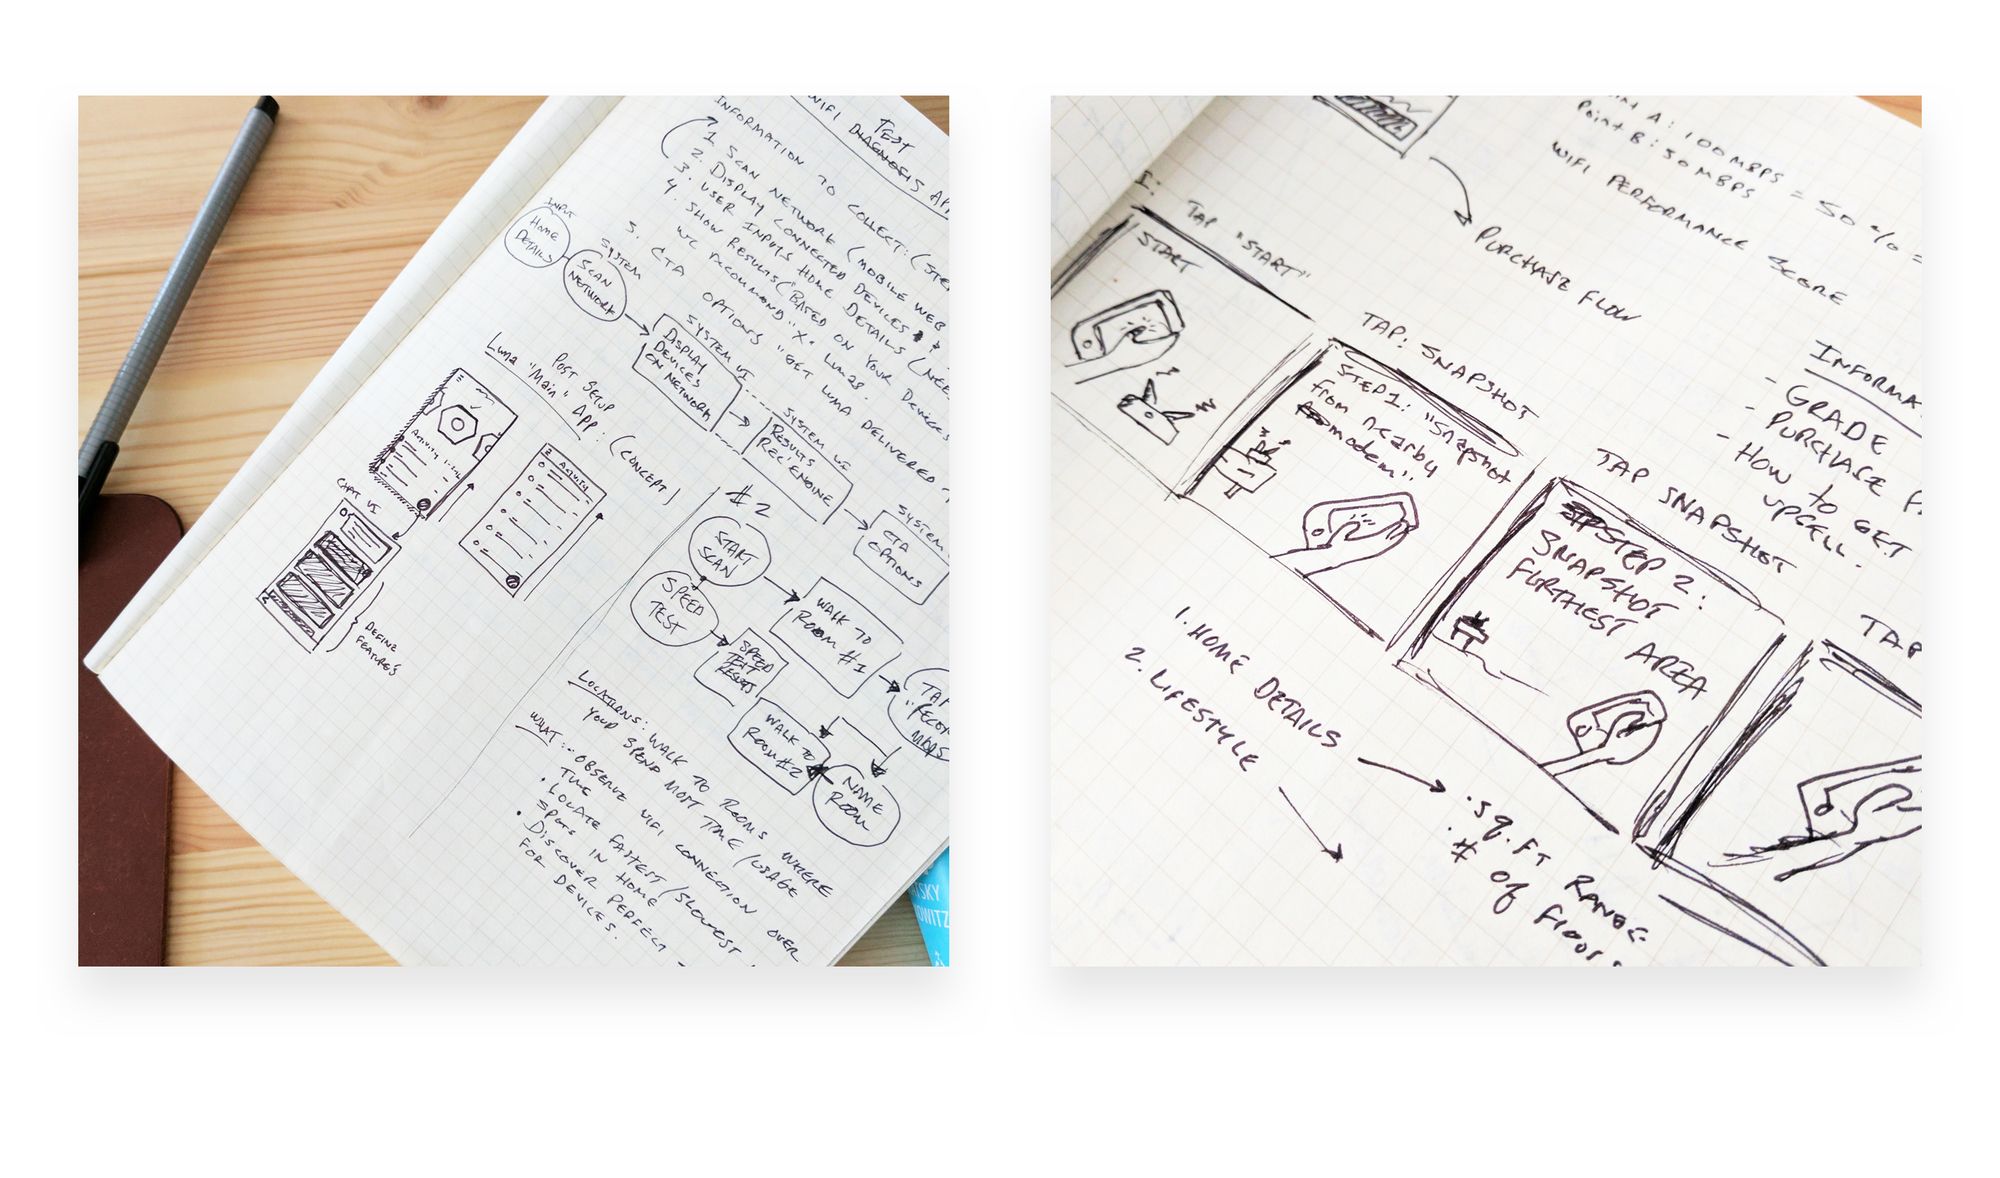 TEST
WIFI DIAGNOSIS AP
INFORMATION TO COLLECT: (STE
1. SCAN NETWORK (MOBILE WEB
2. DISPLAY CONNECTED DEVICES
3. USER INPUTS HOME DETAILS (NEE
4. SHOW RESULTS ("BASED ON YOUR DEVICES
WE RECOMMEND "X" LUMAS.
5. CTA OPTIONS "GET LUMA DELIVERED
INPUT
HOME
DETAILS
SYSTEM
SCAN
NETWORK
SYSTEM UI
DISPLAY
DEVICES
ON NETWORK
SYSTEM UI
RESULTS
REC ENGINE
SYSTEM
CTA
OPTIONS
POST SETUP
LUMA "MAIN" APP: (CONCEPT)
ACTIVITY
ACTIVITY
CHAT UI
DEFINE
FEATURES
#2
START
SCAN
SPEED
TEST
WALK TO
ROOM #1
SPEED
TEST
RESULTS
TAP
"RECOM
WALK TO
ROOM #2
NAME
ROOM
LOCATIONS: WALK TO ROOMS WHERE
YOU SPEND MOST TIME/USAGE
WHAT:
• OBSERVE WIFI CONNECTION OVER
TIME
• LOCATE FASTEST/SLOWEST
SPOTS IN HOME
• DISCOVER PERFECT
FOR DEVICES.
TSKY
OWITZ
IN A: 100 MBPS
POINT B: 50 MBPS = 50% =
WIFI PERFORMANCE SCORE
PURCHASE FLOW
1:
TAP "START"
START
TAP: SNAPSHOT
STEP 1: "Snapshot
from nearby
modem"
TAP SNAPSHOT
STEP 2:
SNAPSHOT
FURTHEST
AREA
TAP
INFORMA
- GRADE
- PURCHASE F
- HOW TO GET
UPCELL.
1. HOME DETAILS
2. LIFESTYLE
• SQ. FT RANGE
• # of Floors